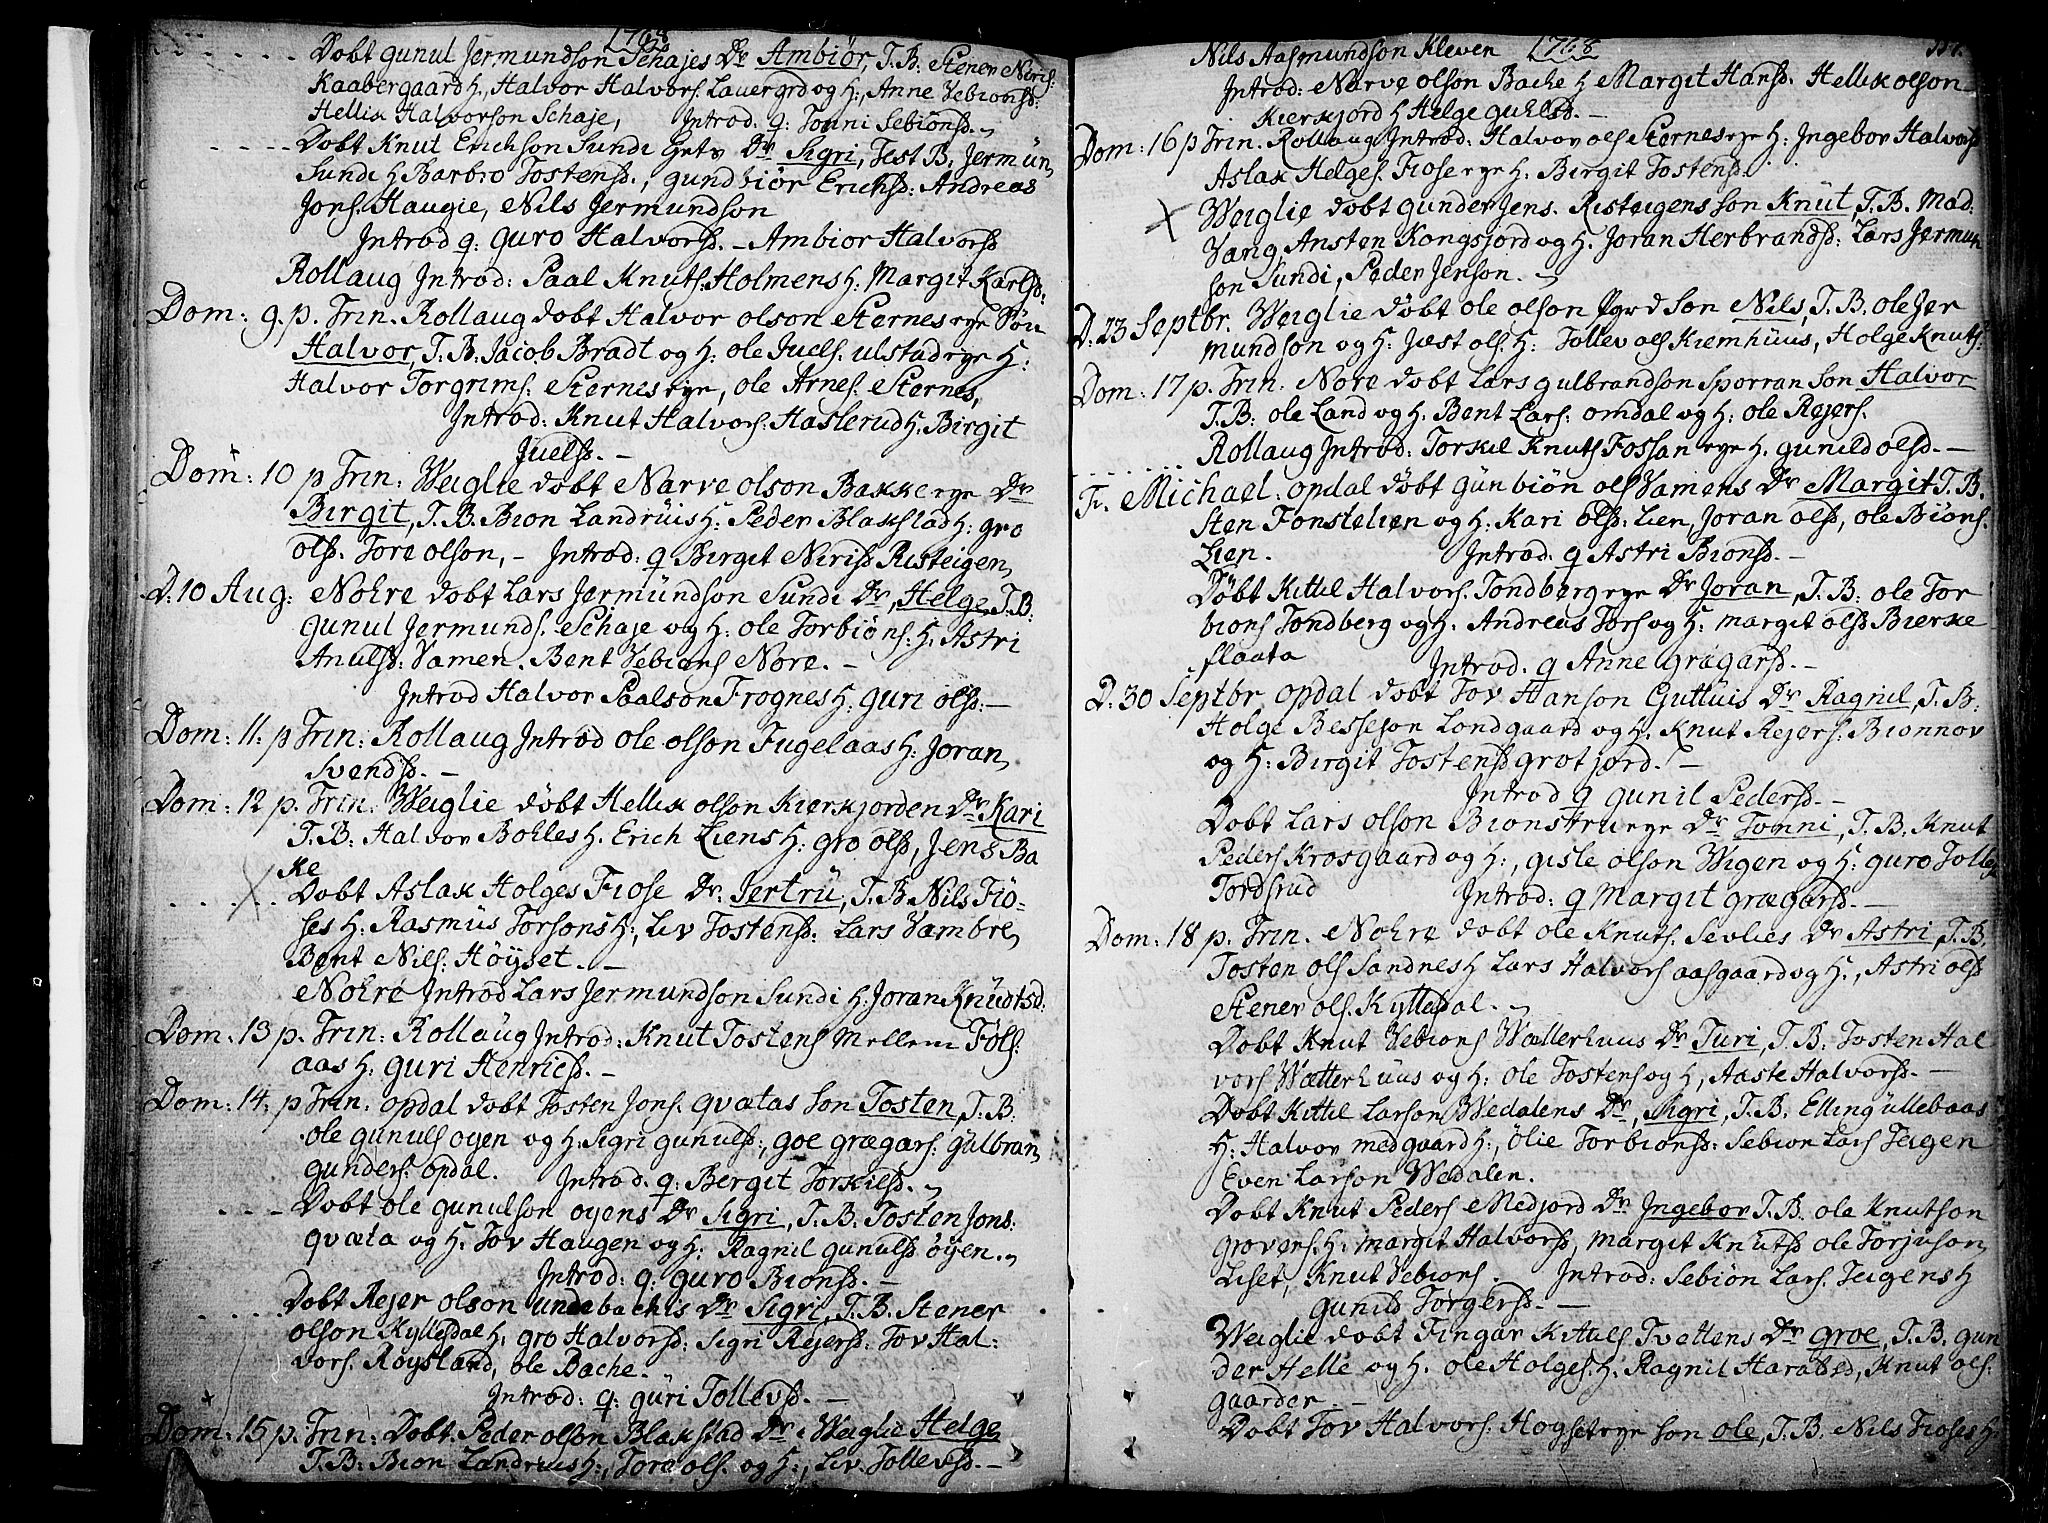 1768
Døbt gunul Jermundson Schajes Dr Ambiør, T.B: Stener Niris:
Kaabergaard H:, Halvor Halvors. Lauergrd og H:, Anne Vebionsd:
Hellix Halvorson Schaje, Introd: q: Tonni Sebionsd. ~
Døbt Knut Erichson Sundi Dr Sigri, Test B, Jermün
Sundi H Barbro Tostensd., gundbiør Erichsd: Andreas
Jons. Haugie, Nils Jermundson
Introd q: guro Halvorsd. – Ambior Halvorsd
Rollaug Introd: Paal Knuts: Holmens H: Margit Karlsd:
Dom: 9. p. Trin. Rollaug døbt Halvor olson Sternes eye Søn
Halvor, T.B: Jacob Bradt og H: ole Juels. ulstad eye H:
Halvor Torgrims: Sternes eye, ole Arnes. Sternes,
Introd: Knut Halvors. Haslerud H: Birgit
Juelsd. –
Dom: 10 p Trin: Weiglie døbt Narve olson Bakke eye Dr
Birgit, T.B. Bion Landrüis H: Peder Blakstad H: gro
olsd. Tore olson, – Introd: q Birgit Nirisd Risteigen,
D: 10 Aug: Nohre døbt Lars Jermündson Sundi Dr, Helge, T.B:
gunul Jermunds. Schaje og H: ole Torbiøns: H: Astri
Anulsd: Vamen. Bent Vebions Nore. –
Introd Halvor Paalson Frognes H: guri olsd: –
Dom: 11: p Trin: Rollaug Introd ole olson Fugelaas H: Joran,
Svendsd. –
Dom: 12 p. Trin: Weiglie døbt Hellix olson Kierkjorden Dr Kari
T.B: Halvor Bohles H. Erich Liens H: gro olsd, Jens Ba
ke
Døbt Aslak Holges Fiose Dr. Jertrü, T.B. Nils Fio-
ses H: Rasmus Torsons H:, Liv Tostensd: Lars Vambre,
Bent Nils: Høyset. –
Nohre Introd Lars Jermundson Sundi H: Joran Knudtsd.
Dom: 13 p. Trin: Rollaüg Introd: Knut Tostens Mellem Føls:
aas H: guri Henricsd. –
Dom: 14. p Trin. opdal døbt Tosten Jons. qvætas son Tosten, T.B.
ole gunuls oyen og H: Sigri gunulsd:, goe grægars: gülbran,
gunders: opdal. Introd: q: Bergit Torkilsd. ~
Døbt ole gunulson oyens Dr Sigri, T.B. Tosten Jons:
qvæta og H: Tov Haugen og H: Ragnil gunulsd øyen. ~
Introd: q: guro Bionsd. –
Døbt Rejer olson undebachis Dr Sigri, T.B. Stener
olson Kyllesdal H: gro Halvorsd: Sigri Rejersd: Tov Hal:
vors. Røysland, ole Bache.
Introd: q: güri Tollevsd. –
Dom: 15 p. Trin: Døbt. Peder olson Blakstad Dr i Weiglie Helge
T.B: Bion Landruis H:, Tore ols. og H:, Liv. Tollevsd. –
Nils Aasmundson Kleven 1768
Introd: Narve olson Bache H Margit Hansd. Hellix olson
Kierkjord H Helge
Dom: 16 p Trin. Rollaug Introd: Halvor ols Sternes eye H: Ingebor Halvorsd
Aslak Helges. Fiose eye H: Birgit Tostensd.
Weiglie døbt gunder Jens. Risteigens son Knüt, T.B. Mad:
Vang, Ansten Kongsjord og H. Joran Herbrandsd: Lars Jermun
son Sundi, Peder Jenson. ~
D: 23 Septbr. Weiglie døbt ole olson son Nils, T.B. ole Jer
mundson og H: Jæst ols. H: Tollev ols Kiemhüus, Holge Knuts:
Dom: 17 p. Trin. Nore døbt Lars gulbrandson Sporran son Halvor
T.B: ole Land og H: Bent Lars: omdal og H: ole Rejers.
Rollaug Introd: Torkil Knuts Fossan eye H. gunild olsd. –
Fr. Michael: opdal døbt günbiøn ols Vamens Dr Margit T.B.
Sten Fonstelien og H: Kari olsd: Lien, Joran olsd, ole Biøns.
Lien. Introd: q Astri Bionsd. –
Døbt Kittil Halvors. Tondberg eye Dr Joran, T.B: ole Tor
bions Tondberg og H. Andreas Tors og H: margit olsd Bierke
flaata Introd. q Anne grægarsd. –
D: 30 Septbr opdal døbt Tov Hanson Guttuis Dr Ragnil, T.B:
Holge Besseson Londgaard og H, Knut Rejers: Bionnov
og H: Birgit Tostensd grotjord. –
Introd q gunil Pedersd. –
Døbt Lars olson Bionstru eye Dr Tonni, T.B. Knut
Peders Krosgaard og H:, gisle olson Wigen og H: guro Tolle
Tordsrud Introd: q Margit grægarsd. –
Dom: 18 p. Trin. Nohre døbt ole Knuts. Sevlies Dr Astri, T.B.
Tosten ols Sandnes H Lars Halvors aasgaard og H., Astri olsd
Stener ols. Kyllesdal. ~
Døbt Knut Vebions Wællerhuus Dr Turi, T.B. Tosten Hal
vors Wætterhüus og H: ole Tostens og H, Aaste Halvorsd. –
Døbt Kittil Larson Wedalens Dr, Sigri, T.B. Elling üllebaas
H: Halvor medgaard H:, ølie Torbionsd: Sebion Lars Teigen
Even Larson Wedalen.
Døbt Knut Peders Medjord Dr Ingebor T.B. ole Knutson
groven s. H: margit Halvorsd, margit Knütsd ole Torjuson,
Liset, Knut Vebions. Introd: Sebiøn Lars. Teigens H
gunild Torgersd. –
Weiglie døbt Fingar Kittils Tvettens Dr groe, T.B. gun
der Helle og H. ole Holges: H: Ragnil Haralsd, Knut ols.
gaarder. –
Døbt Tov Halvors: Høgset eye son ole, T.B. Nils Fioses H: